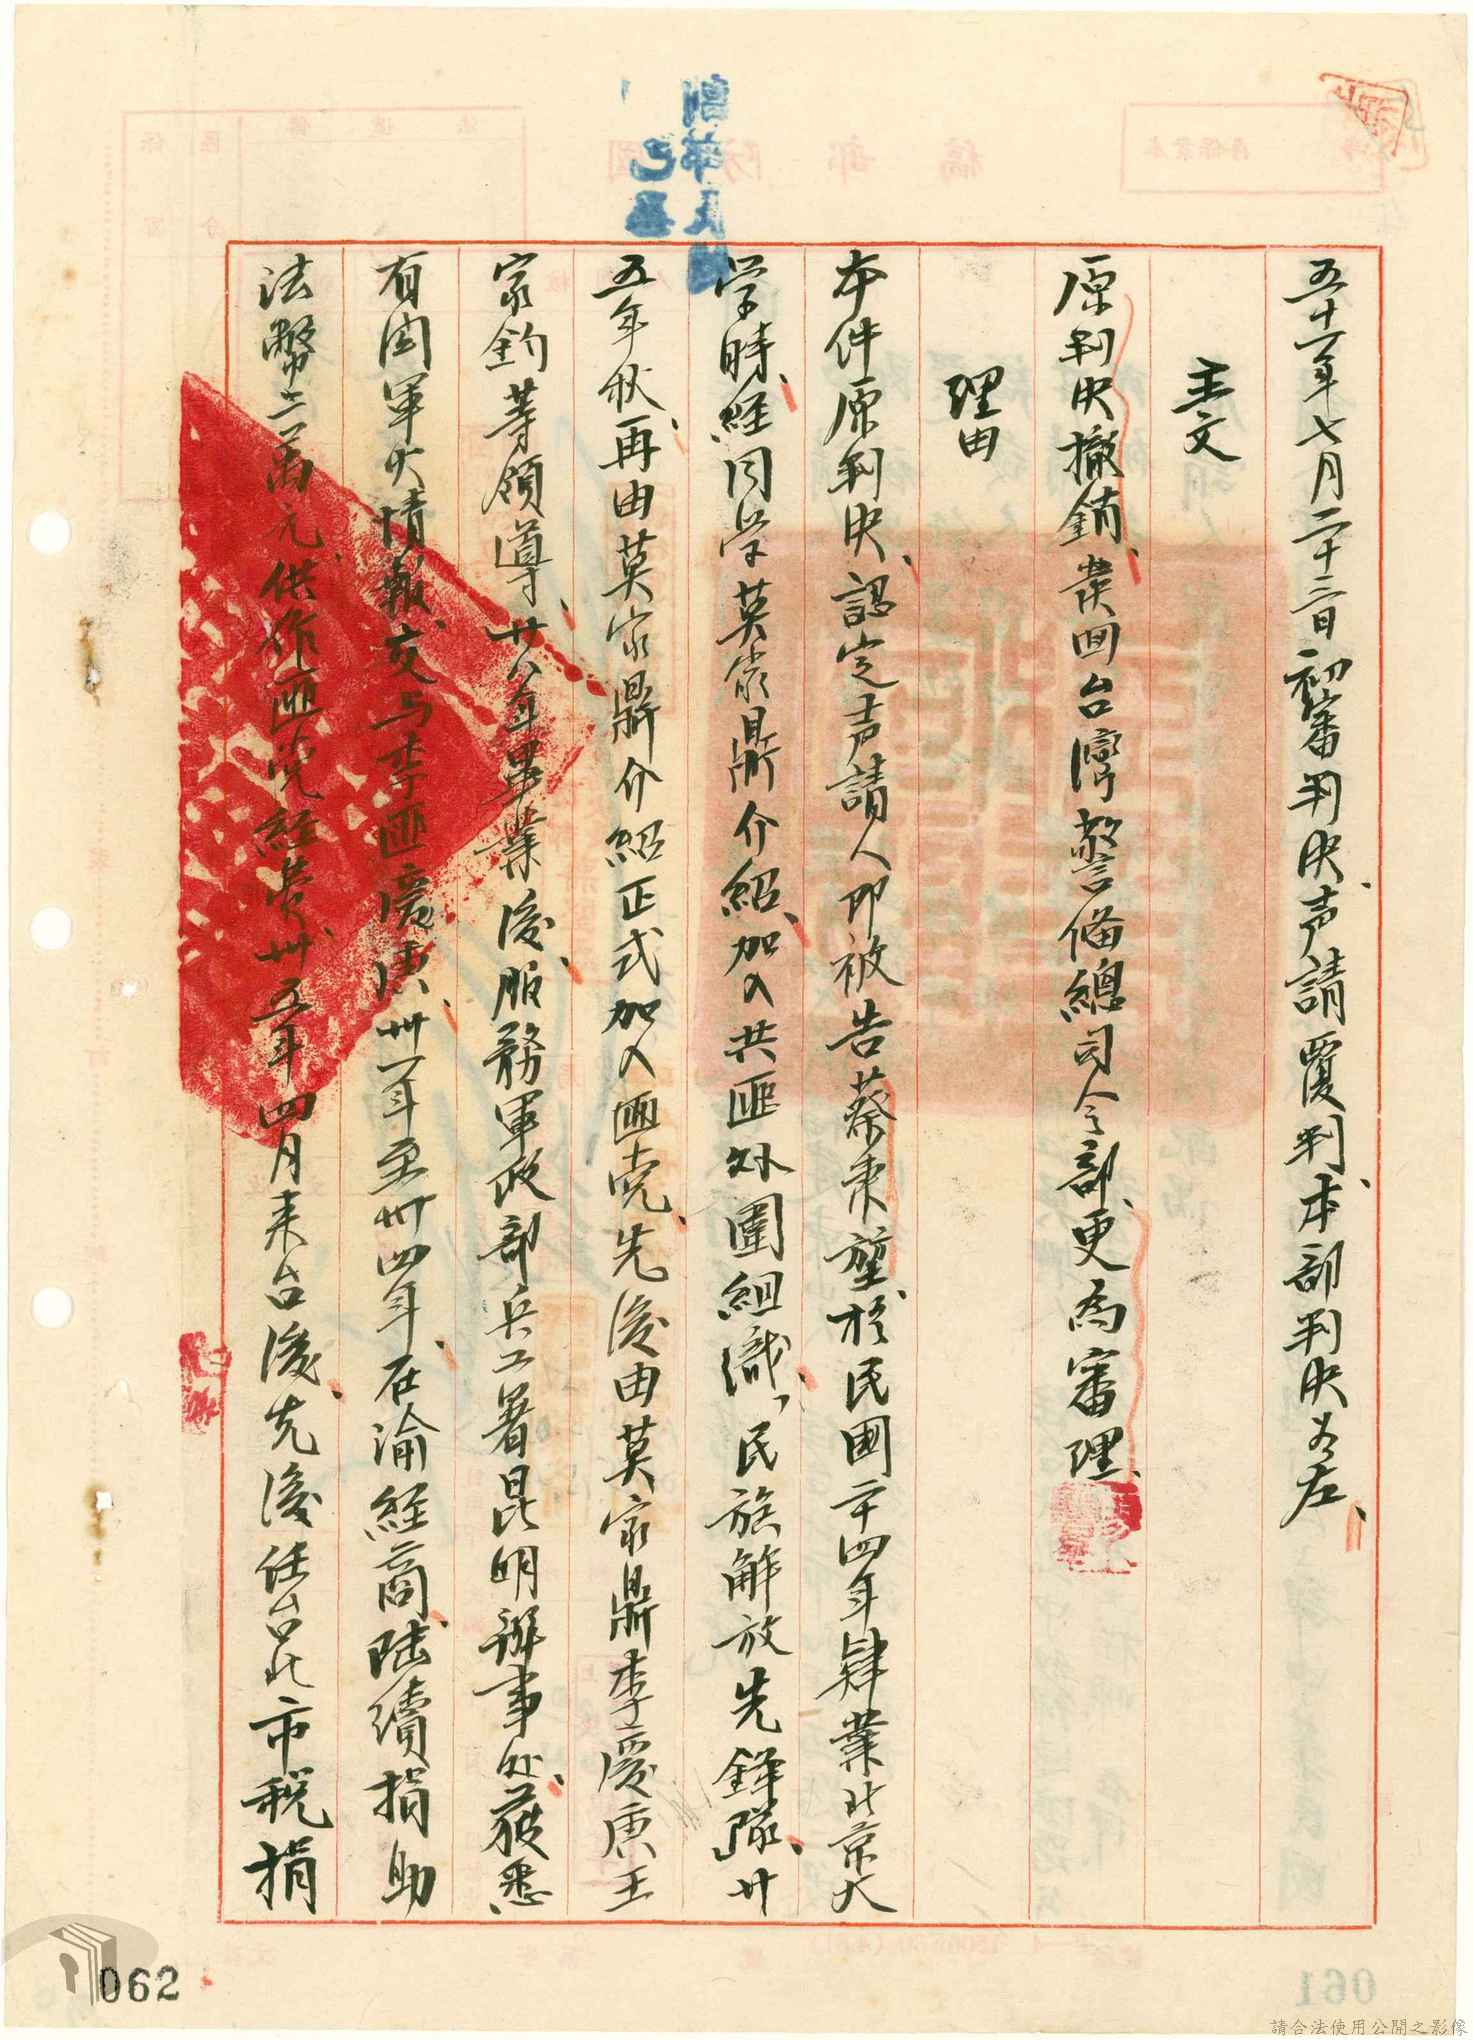 五十一年七月二十三日初審判決、声請覆判、本部判決如左、
主文
原判決撤銷、發回台灣警備總司令部、更為審理、
理由
本件原判決、認定声請人即被告蔡秉堃、於民國二十四年肄業北京大
学時、經同学莫家鼎介紹、加入共匪外圍組織、「民族解放先鋒隊」、廿
五年秋、再由莫家鼎介紹正式加入匪党、先後由莫家鼎李慶庚王
家鈞等領導、廿八年畢業後、服務軍政部兵工署昆明辦事処、获悉
有関軍火情報、交与李匪慶庚、卅一年至卅四年、在渝經商、陸續捐助
法幣二萬元、供作匪党經費、卅五年四月来台後、先後任台北市稅捐
062
061
請合法使用公開之影像